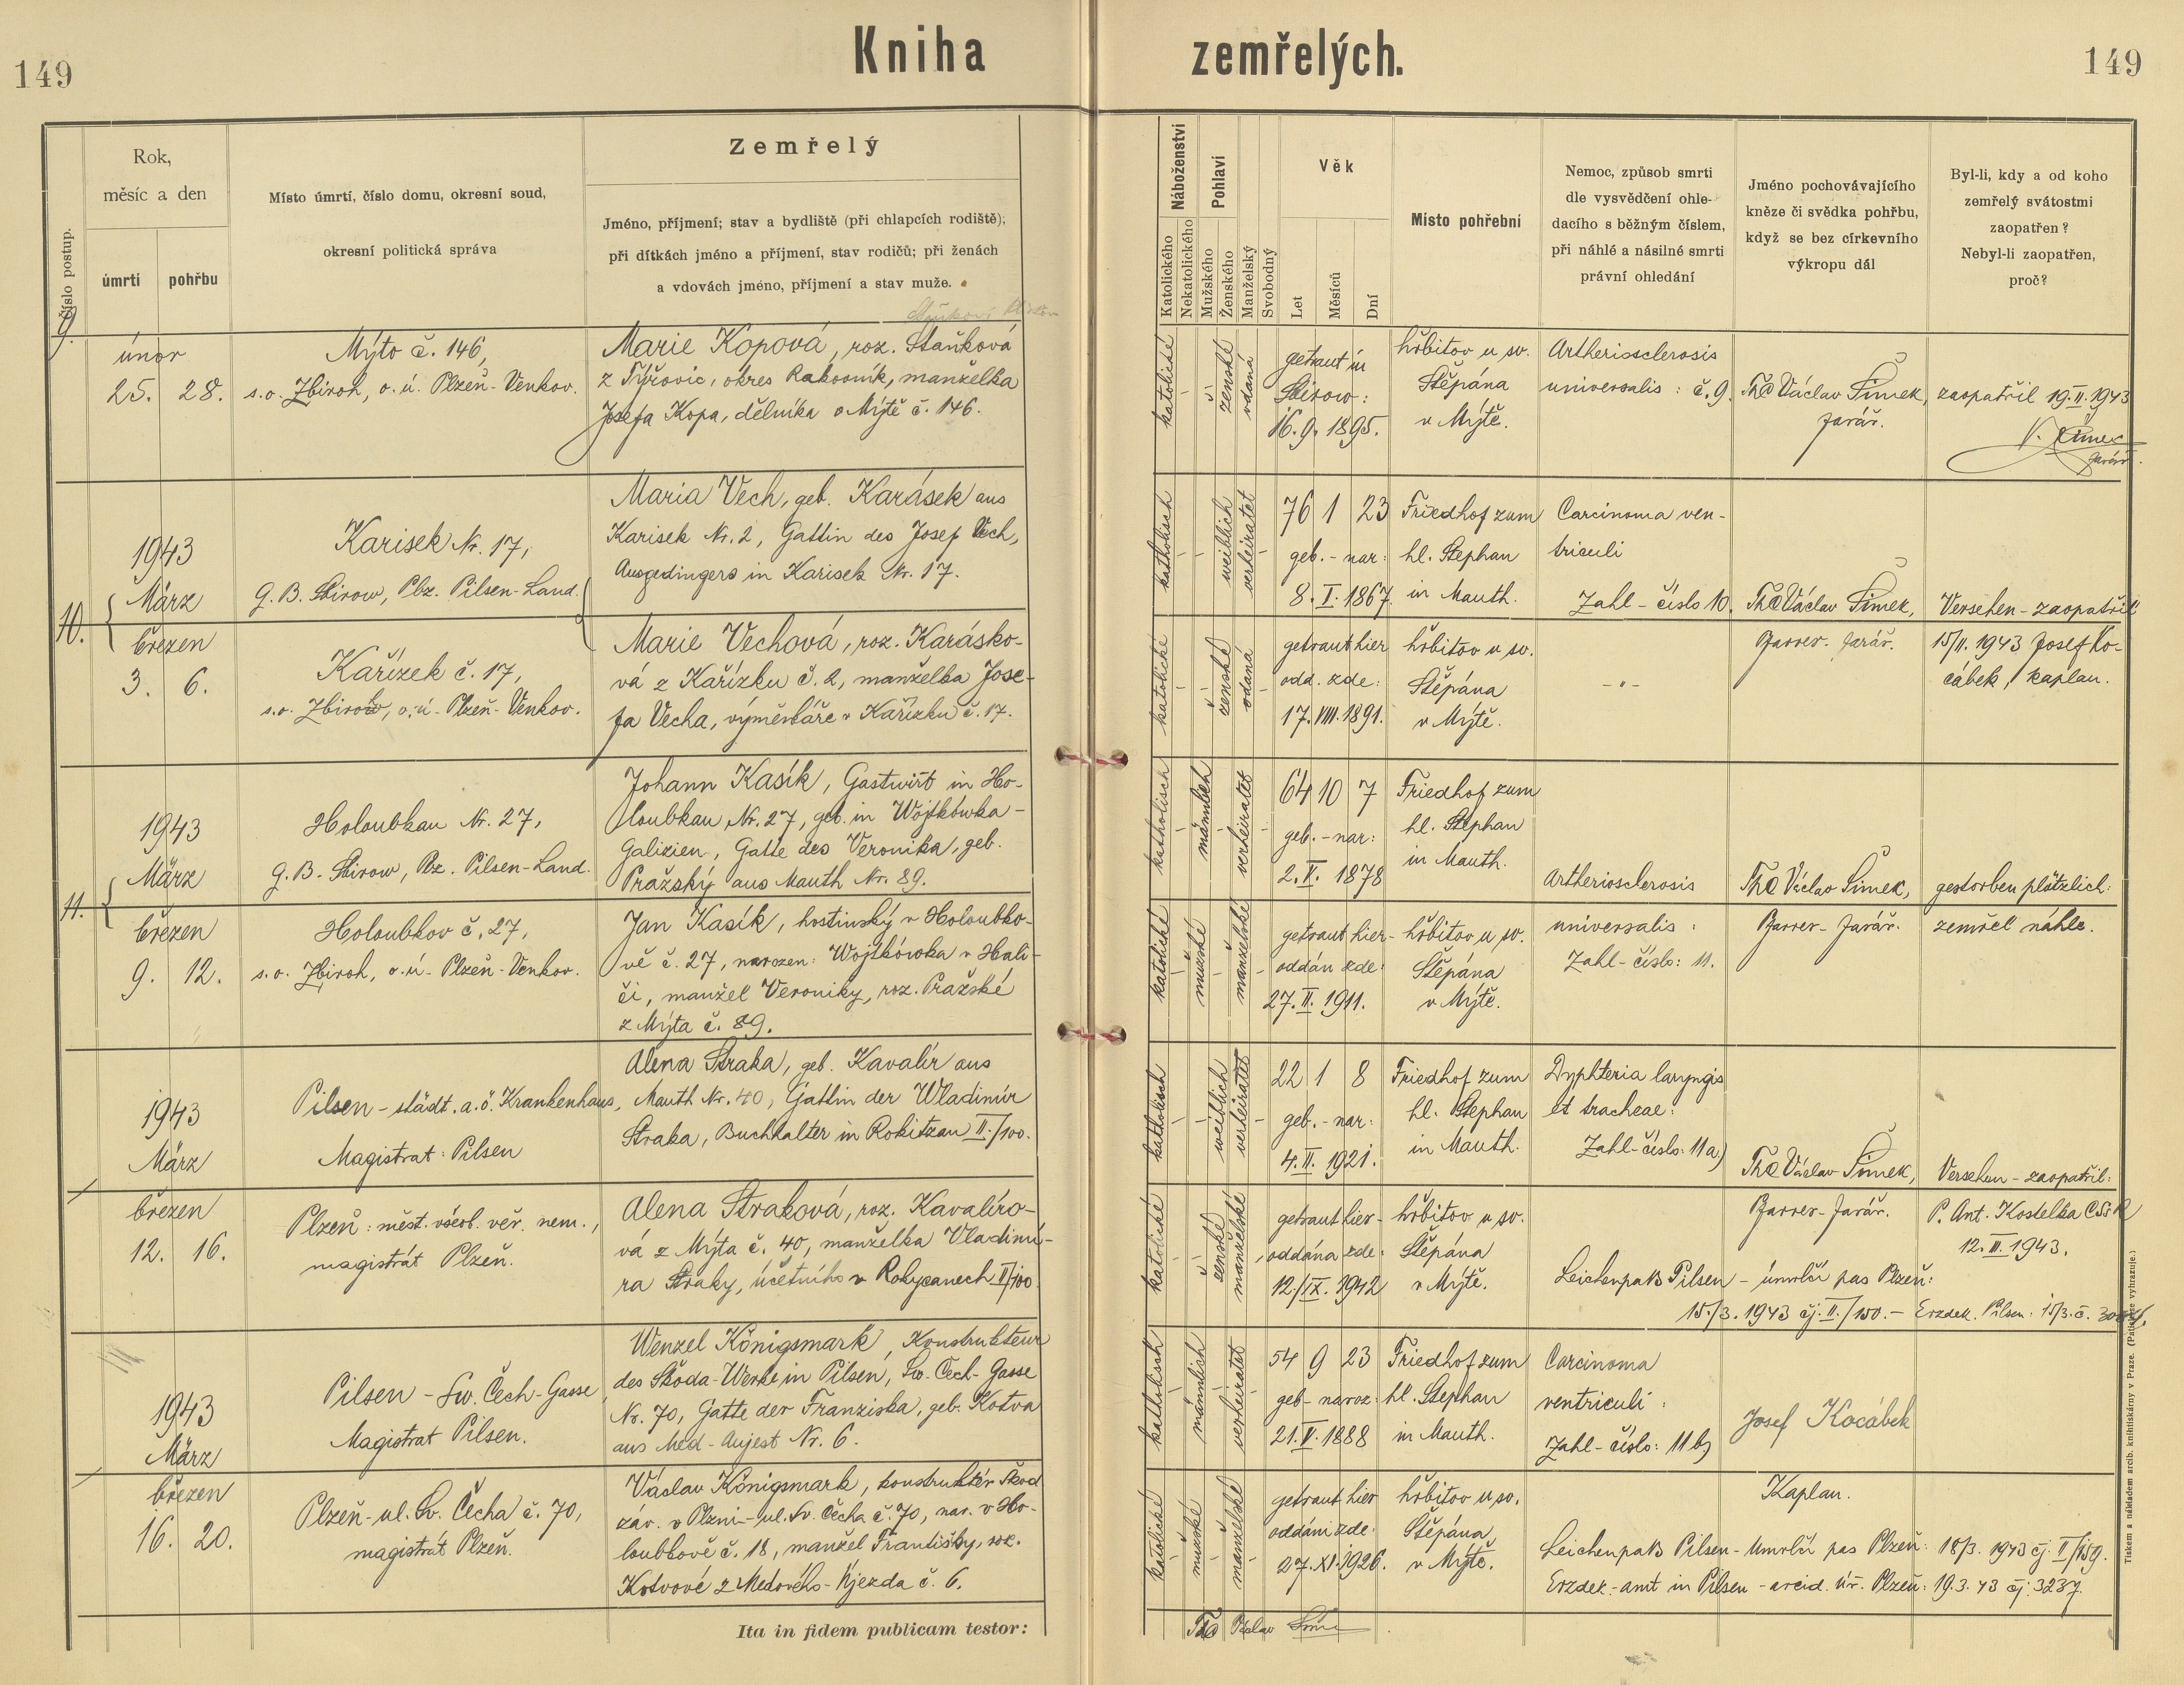 149
Kniha zemřelých.
149
Číslo postup.
Rok,
měsíc a den
úmrtí
pohřbu
Místo úmrtí, číslo domu, okresní soud,
okresní politická správa
Zemřelý
Jméno, příjmení; stav a bydliště (při chlapcích rodiště);
při dítkách jméno a příjmení, stav rodičů; při ženách
a vdovách jméno, příjmení a stav muže.
Náboženství
Katolického
Nekatolického
Pohlaví
Mužského
Ženského
Manželský
Svobodný
Věk
Let
Měsíců
Dní
Místo pohřební
Nemoc, způsob smrti
dle vysvědčení ohle-
dacího s běžným číslem,
při náhlé a násilné smrti
právní ohledání
Jméno pochovávajícího
kněze či svědka pohřbu,
když se bez církevního
výkropu dál
Byl-li, kdy a od koho
zemřelý svátostmi
zaopatřen?
Nebyl-li zaopatřen,
proč?
9.
únor
25. 28.
Mýto č. 146,
s.o. Zbiroh, o.ú. Plzeň-Venkov.
Marie Kopová, roz. Staňková
z Týřovic, okres Rakovník, manželka
Josefa Kopa, dělníka v Mýtě č. 146.
katolické
ženské
vdaná
getraut in
Sbirow:
16. 9. 1895.
hřbitov u sv.
Štěpána
v Mýtě.
Artheriosclerosis
universalis: č. 9.
ThC Václav Šimek,
farář.
zaopatřil 19.II.1943
V. Šimek
farář.
10.
1943
März
Karisek Nr. 17,
G. B. Sbirow, Pbz. Pilsen-Land.
Maria Vech, geb. Karásek aus
Karisek Nr. 2, Gattin des Josef Vech,
Ausgedingers in Karisek Nr. 17.
katholisch
weiblich
verheiratet
76 1 23
geb. - nar:
8. I. 1867.
Friedhof zum
hl. Stephan
in Mauth.
Carcinoma ven-
triculi
Zahl - číslo 10.
ThC Václav Šimek,
Versehen - zaopatřil
březen
3. 6.
Kařízek č. 17,
s.o. Zbiroh, o.ú. Plzeň-Venkov.
Marie Vechová, roz. Karásko-
vá z Kařízku č. 2, manželka Jose-
fa Vecha, výměnkáře v Kařízku č. 17.
katolické
ženské
vdaná
getraut hier
odd. zde:
17. VIII. 1891.
hřbitov u sv.
Štěpána
v Mýtě.
- " -
Pfarrer - farář.
15/II. 1943 Josef Ko-
cábek, kaplan.
11.
1943
März
Holoubkau Nr. 27,
G. B. Sbirow, Pbz. Pilsen-Land.
Johann Kasík, Gastwirt in Ho-
loubkau Nr. 27, geb. in Wojtkówka -
Galizien, Gatte des Veronika, geb.
Pražský aus Mauth Nr. 89.
katholisch
männlich
verheiratet
64 10 7
geb. - nar:
2. V. 1878
Friedhof zum
hl. Stephan
in Mauth.
Artheriosclerosis
ThC Václav Šimek,
gestorben plötzlich:
březen
9. 12.
Holoubkov č. 27,
s.o. Zbiroh, o.ú. Plzeň-Venkov.
Jan Kasík, hostinský v Holoubko-
vě č. 27, narozen: Wojtkówka v Hali-
či, manžel Veroniky, roz. Pražské
z Mýta č. 89.
katolické
mužské
manželské
getraut hier -
oddán zde:
27. II. 1911.
hřbitov u sv.
Štěpána
v Mýtě.
universalis:
Zahl - číslo: 11.
Pfarrer - farář.
zemřel náhle.
1943
März
Pilsen - städt. a.ö. Krankenhaus,
Magistrat: Pilsen
Alena Straka, geb. Kavalír aus
Mauth Nr. 40, Gattin der Wladimír
Straka, Buchhalter in Rokitzan II./100.
katholisch
weiblich
verheiratet
22 1 8
geb. - nar:
4. II. 1921.
Friedhof zum
hl. Stephan
in Mauth.
Dyphteria laryngis
et tracheae:
Zahl - číslo: 11a)
ThC Václav Šimek,
Versehen - zaopatřil:
březen
12. 16.
Plzeň: měst. všeob. veř. nem.,
magistrát Plzeň.
Alena Straková, roz. Kavalíro-
vá z Mýta č. 40, manželka Vladimí-
ra Straky, účetního v Rokycanech II/100.
katolické
ženské
manželské
getraut hier -
oddána zde:
12./IX. 1942
hřbitov u sv.
Štěpána
v Mýtě.
Pfarrer - farář.
P. Ant. Kostelka CSsR
12. III. 1943.
Leichenpaß Pilsen - úmrlčí pas Plzeň:
15/3. 1943 čj. II./150. - Erzdek. Pilsen: 15/3. č.
1943
März
Pilsen - Sw. Čech-Gasse
Magistrat Pilsen.
Wenzel Königsmark, Konstrukteur
des Škoda-Werke in Pilsen, Sw. Čech-Gasse
Nr. 70, Gatte der Franziska, geb. Kotva
aus Med-Aujest Nr. 6.
katholisch
männlich
verheiratet
54 9 23
geb - naroz:
21. V. 1888
Friedhof zum
hl. Stephan
in Mauth.
Carcinoma
ventriculi:
Zahl - číslo: 11 b)
Josef Kocábek
březen
16. 20.
Plzeň - ul. Sv. Čecha č. 70,
magistrát Plzeň.
Václav Königsmark, konstruktér Škod
záv. v Plzni - ul. Sv. Čecha č. 70, nar. v Ho-
loubkově č. 18, manžel Františky, roz.
Kotvové z Medového-Újezda č. 6.
katolické
mužské
manželské
getraut hier
oddáni zde:
27. XI. 1926.
hřbitov u sv.
Štěpána
v Mýtě.
Kaplan.
Leichenpaß Pilsen - Umrlčí pas Plzeň: 18/3. 1943 čj. II/159.
Erzdek.-amt in Pilsen - arcid. úř. Plzeň: 19.3.43 čj. 3237.
Ita in fidem publicam testor:
ThC Václav Šimek
Tiskem a nákladem arcib. knihtiskárny v Praze. (Patisk se vyhrazuje.)